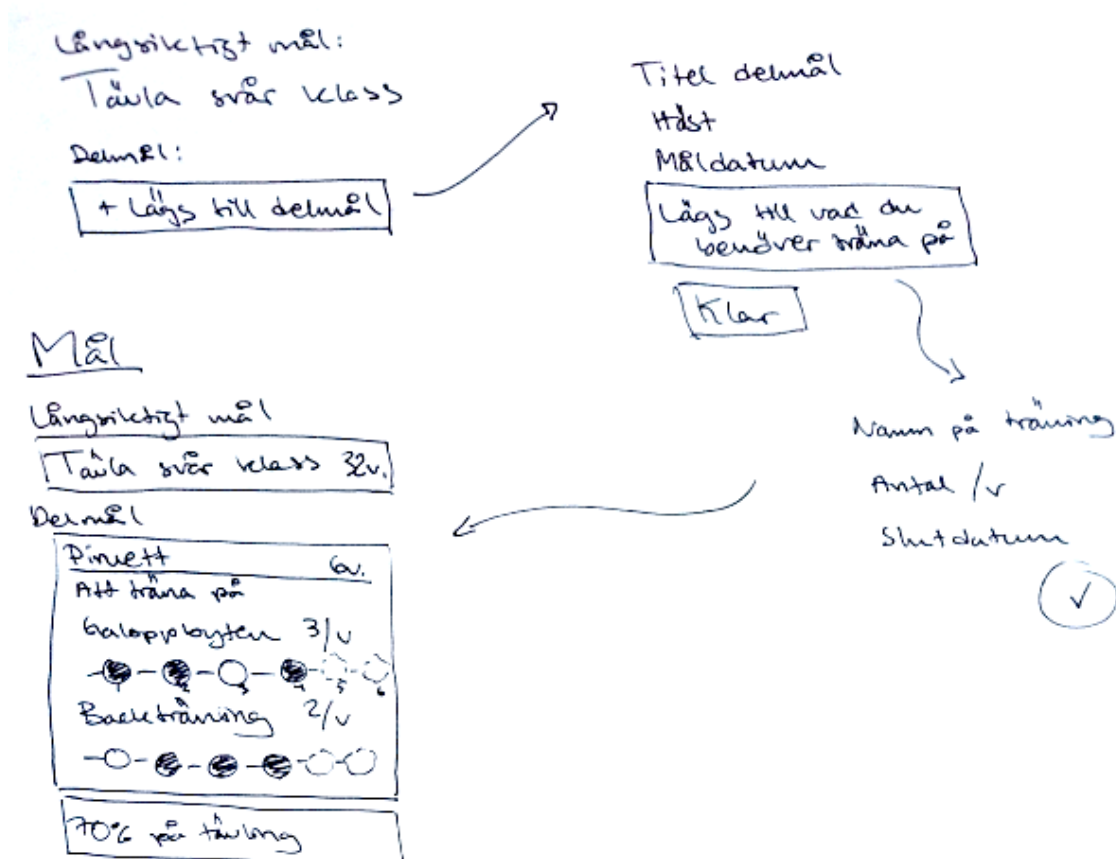 Långsiktigt mål:
Tävla svår klass
Delmål:
+ Lägg till delmål
Titel delmål
Häst
Måldatum
Lägg till vad du
behöver träna på
Klar
Namn på träning
Antal /v
Slutdatum
✓
Mål
Långsiktigt mål
Tävla svår klass 32v.
Delmål
Piruett 6v.
Att träna på
Galoppbyten 3/v
1 2 3 4 5 6
Backträning 2/v
70% på tävling